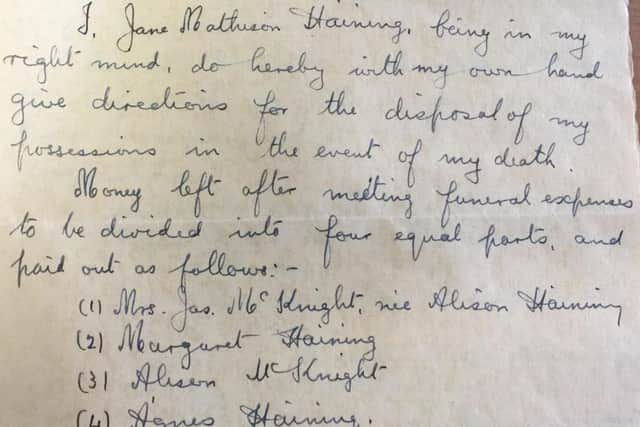 I, Jane Mathison Haining, being in my
right mind, do hereby with my own hand
give directions for the disposal of my
possessions in the event of my death.
Money left after meeting funeral expenses
to be divided into four equal parts, and
paid out as follows:-
(1) Mrs. Jas. McKnight, née Alison Haining
(2) Margaret Haining
(3) Alison McKnight
(4) Agnes Haining.